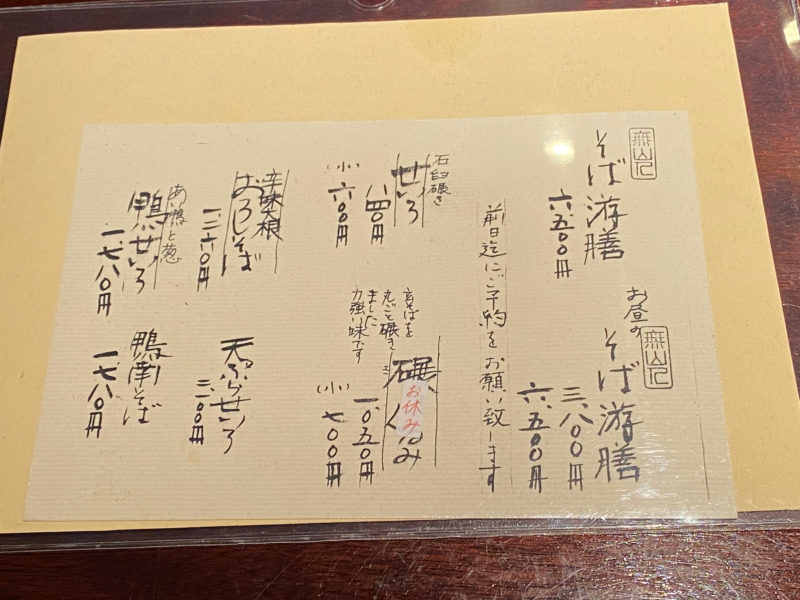 そば游膳
六、五〇〇円
お昼の
そば游膳
三、八〇〇円
六、五〇〇円
前日迄にご予約をお願い致します
石臼碾き
せいろ
八四〇円
(小) 六〇〇円
玄そばを
丸ごと碾き
ました
力強い味です
碾ぐるみ
お休み
一、〇五〇円
(小) 七〇〇円
辛味大根
おろしそば
一、二六〇円
天ぷらせいろ
あい鴨と葱
鴨せいろ
一、七八〇円
鴨南そば
一、七八〇円